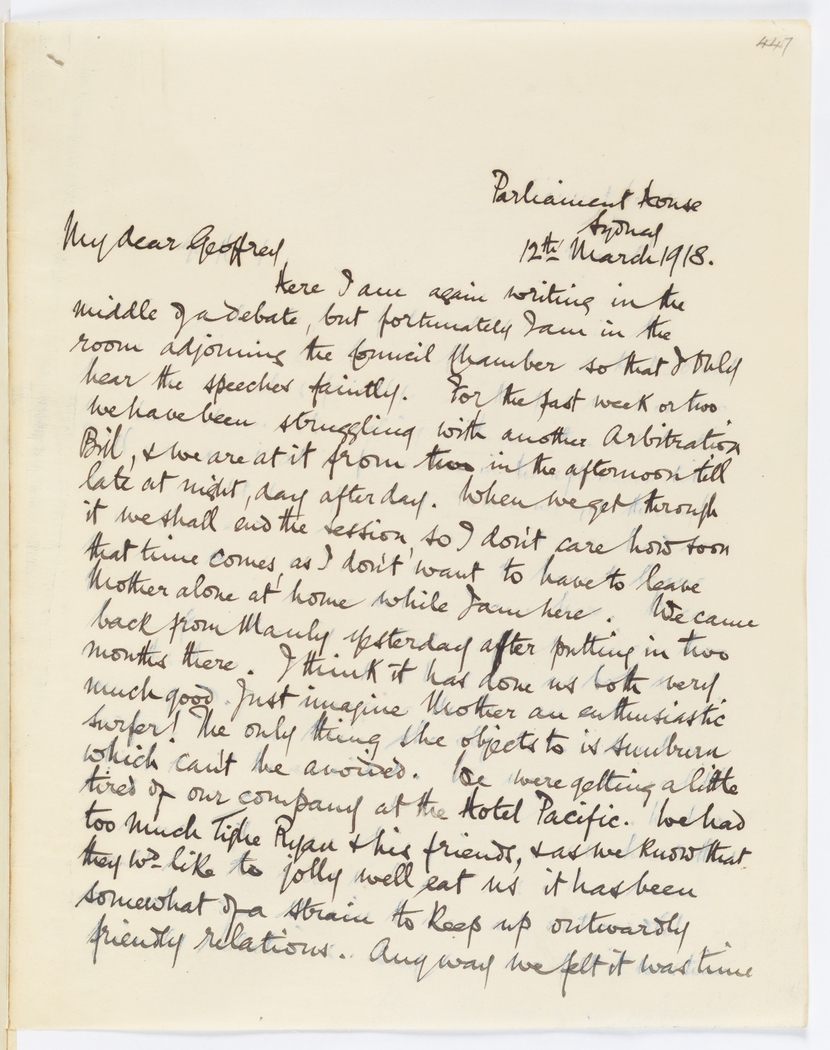 447
Parliament House
Sydney
12th March 1918.
My dear Geoffrey,
Here I am again writing in the
middle of a debate, but fortunately I am in the
room adjoining the Council Chamber so that I only
hear the speeches faintly. For the past week or two
we have been struggling with another Arbitration
Bill, & we are at it from two in the afternoon till
late at night, day after day. When we get through
it we shall end the session, so I don't care how soon
that time comes, as I don't want to have to leave
Mother alone at home while I am here. We came
back from Manly yesterday after putting in two
months there. I think it has done us both very
much good. Just imagine Mother an enthusiastic
surfer! The only thing she objects to is sunburn
which can't be avoided. We were getting a little
tired of our company at the Hotel Pacific. We had
too much Tighe Ryan & his friends, & as we know that
they wd like to jolly well eat us it has been
somewhat of a strain to keep up outwardly
friendly relations. Anyway we felt it was time